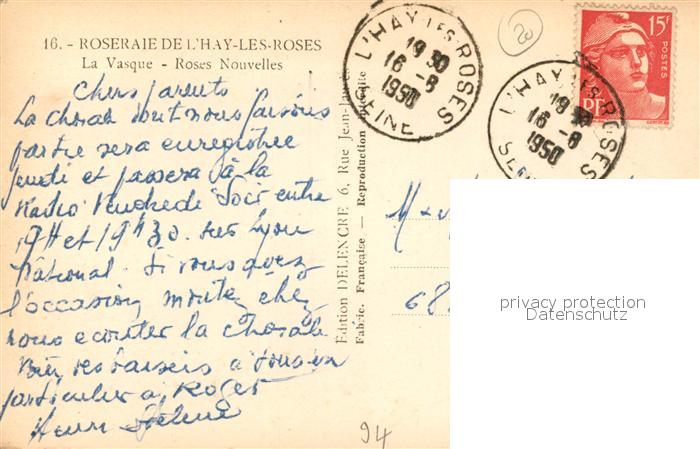 16. - ROSERAIE DE L'HAY-LES-ROSES
La Vasque - Roses Nouvelles
Chers parents
La chorale dont nous faisons
partie sera enregistrée
jeudi et passera à la
Radio Vendredi soir entre
19H et 19H30 sur Lyon
National. Si vous avez
l'occasion montez chez
nous ecouter la chorale
Bien des baisers à tous en
particulier à Roger
Henri Hélène
Edition DELENCRE 6, Rue Jean-Jaurès
Fabric. Française - Reproduction interdite
L'HAY LES ROSES
19 30
16 - 8
1950
SEINE
20
15F
POSTES
RF
L'HAY LES ROSES
19 30
16 - 8
1950
M &
68
94
privacy protection
Datenschutz